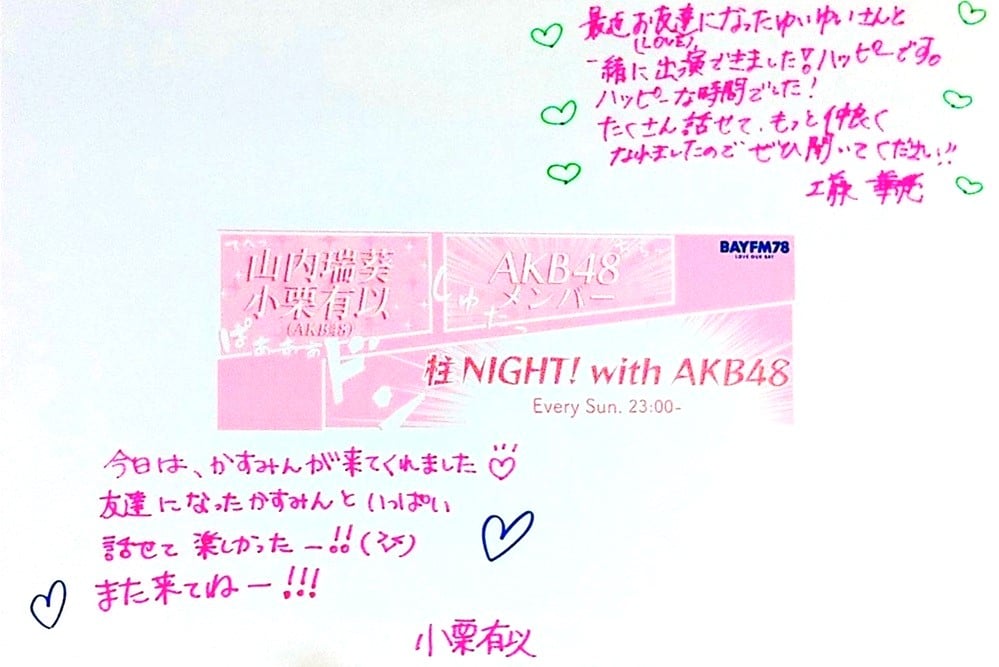 最近お友達になったゆいゆいさんと
(LOVE)
一緒に出演できました!ハッピーです。
ハッピーな時間でした!
たくさん話せて、もっと仲良く
なれましたので ぜひ聞いてください!!
工藤 華純
てへっ
山内瑞葵
小栗有以
(AKB48)
ぱぁぁぁぁ
AKB48
メンバー
しゅたっ
BAYFM78
LOVE OUR BAY
柱NIGHT! with AKB48
Every Sun. 23:00-
今日は、かすみんが来てくれました
友達になったかすみんと いっぱい
話せて 楽しかったー!!
また来てねー!!!
小栗有以